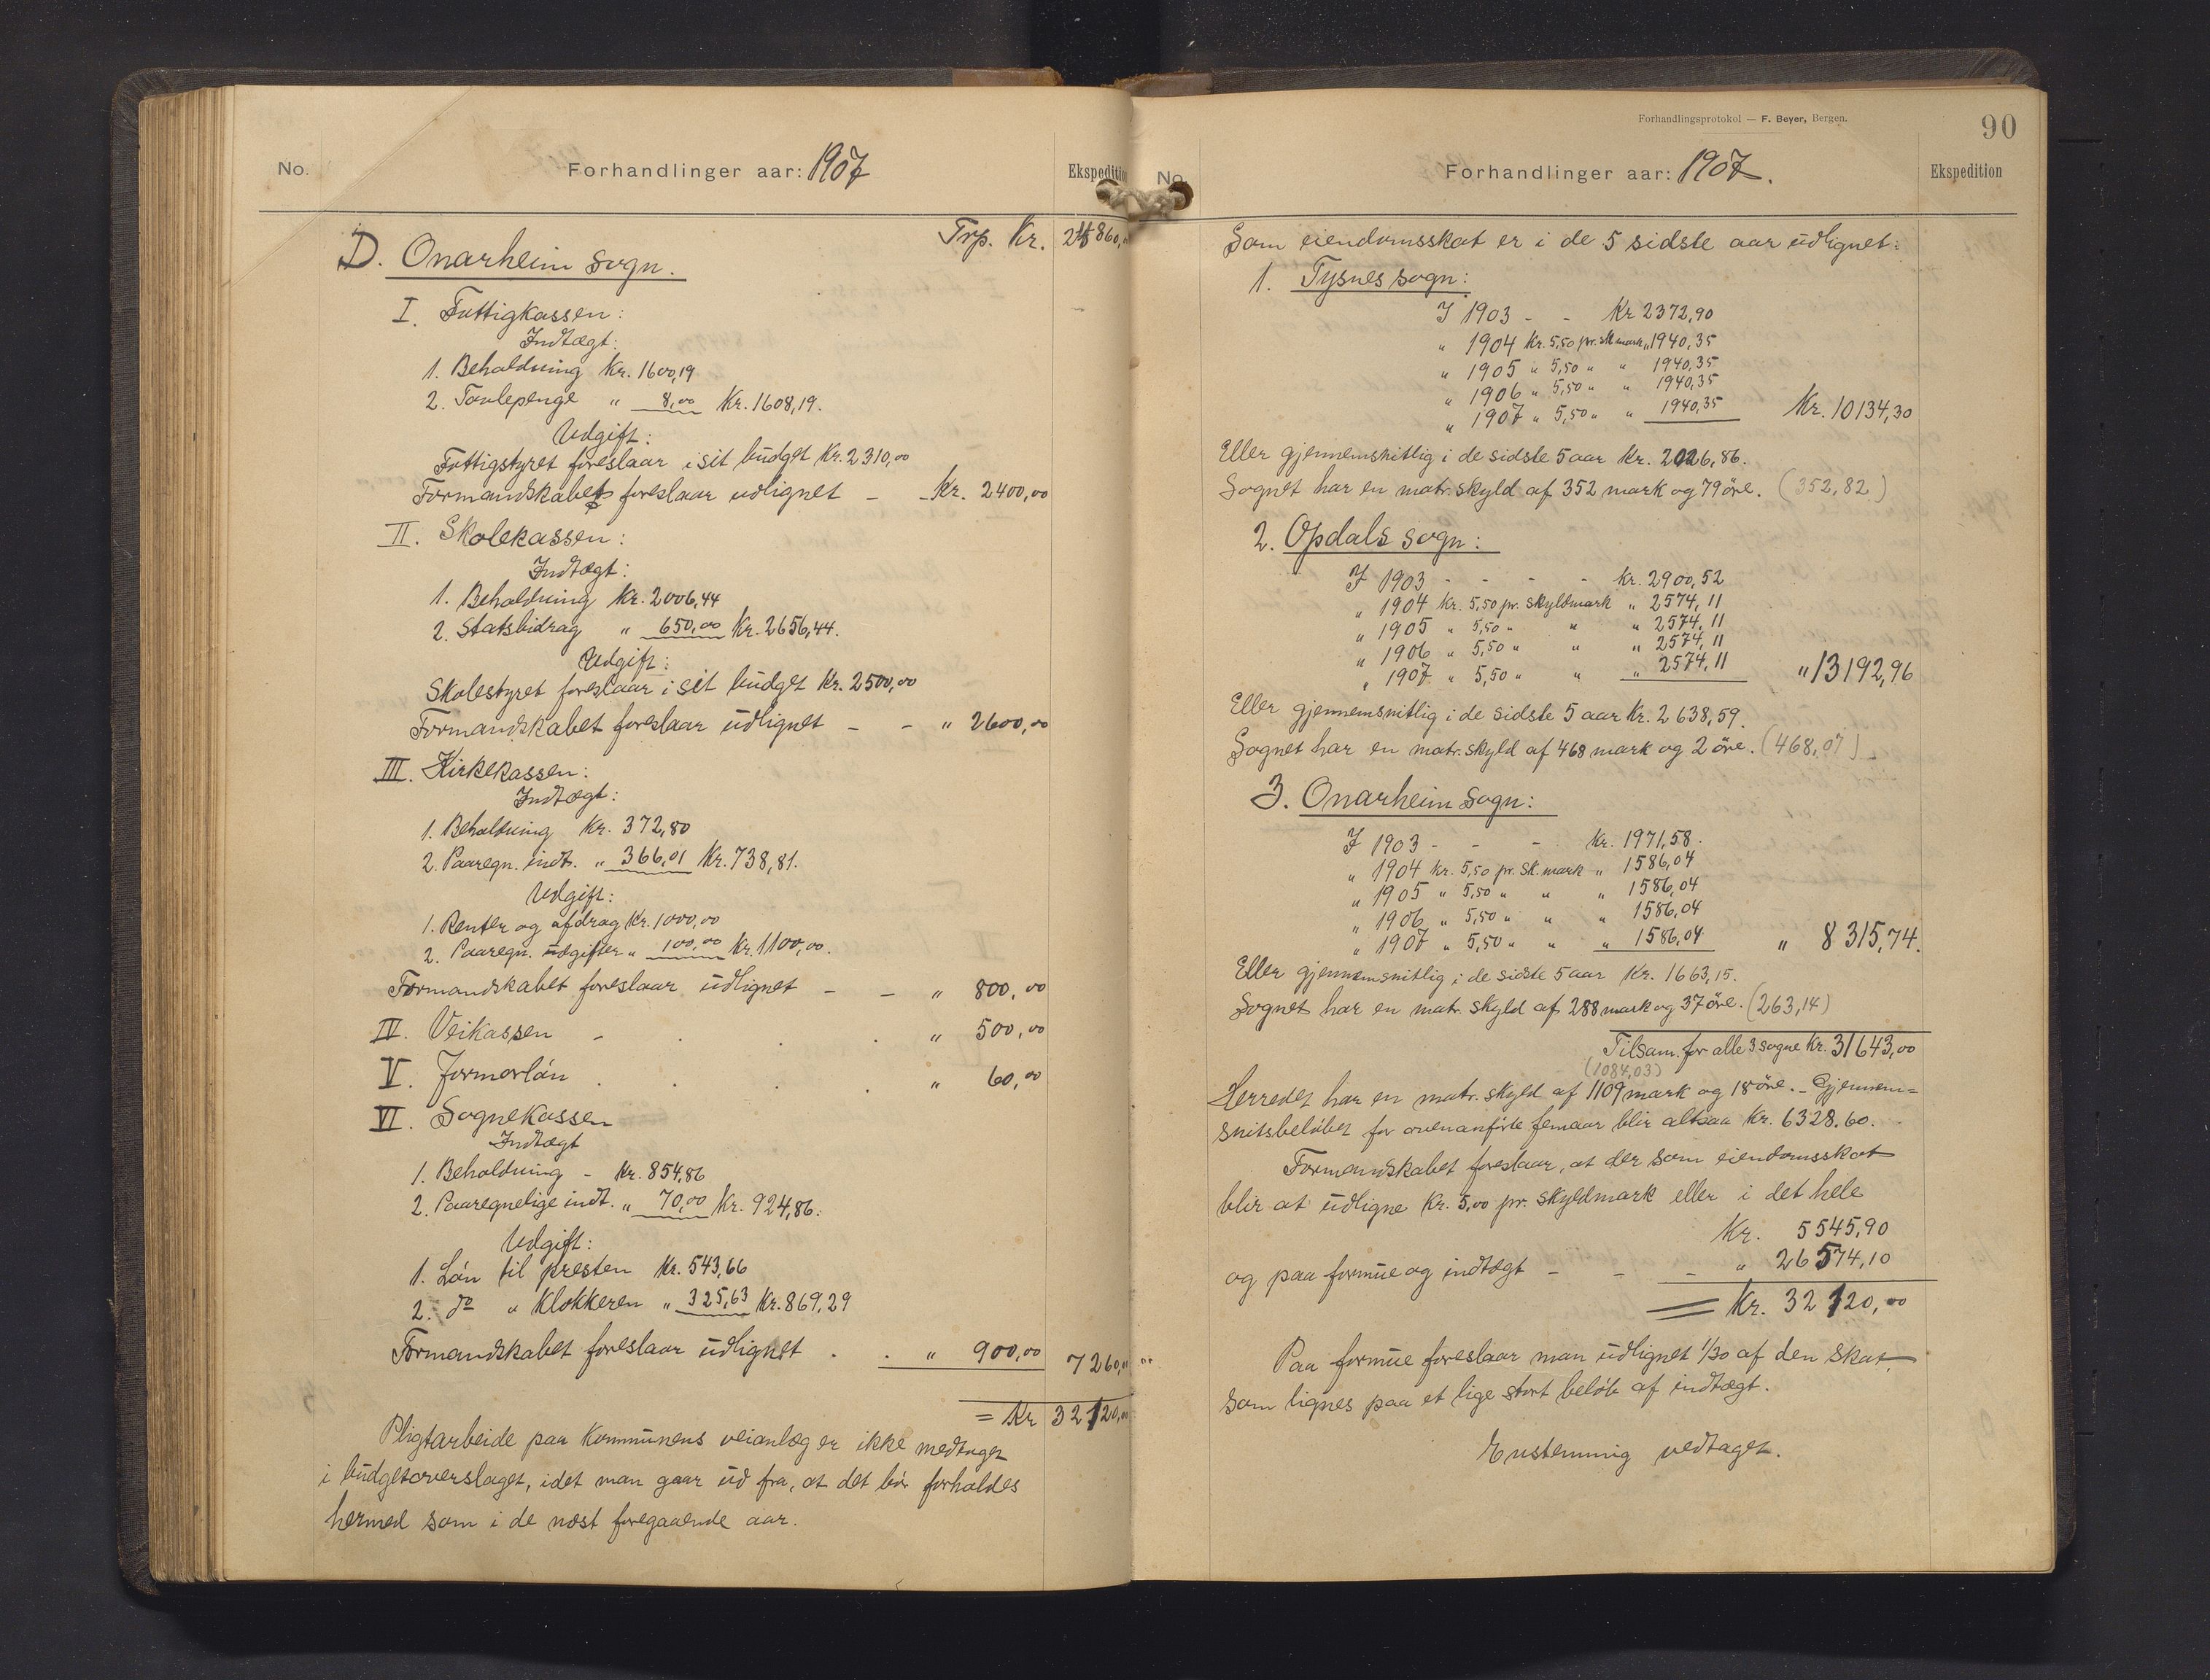 No.
Forhandlinger aar: 1907
Ekspedition
Trp. Kr. 24860,00
D. Onarheim sogn.
I. Fattigkassen:
Indtægt:
1. Beholdning Kr. 1600,19
2. Tavlepenge " 8,00 Kr. 1608,19.
Udgift:
Fattigstyret foreslaar i sit budget Kr. 2310,00
Formandskabet foreslaar udlignet - - Kr. 2400,00
II. Skolekassen:
Indtægt:
1. Beholdning Kr. 2006,44
2. Statsbidrag " 650,00 Kr. 2656,44.
Udgift:
Skolestyret foreslaar i sit budget Kr. 2500,00
Formandskabet foreslaar udlignet - - " 2600,00
III. Kirkekassen:
Indtægt:
1. Beholdning Kr. 372,80
2. Paaregn. indt. " 366,01 Kr. 738,81.
Udgift:
1. Renter og afdrag Kr. 1000,00
2. Paaregn. udgifter " 100,00 Kr. 1100,00.
Formandskabet foreslaar udlignet - - " 800,00
IV. Veikassen - . . . " 500,00
V. Jormorlön . . . . " 60,00
VI. Sognekassen
Indtægt
1. Beholdning - Kr. 854,86
2. Paaregnelige indt. " 70,00 Kr. 924,86.
Udgift:
1. Lön til presten Kr. 543,66
2. do " Klokkeren " 325,63 Kr. 869,29
Formandskabet foreslaar udlignet . . " 900,00 7260,00
= Kr 32120,00
Pligtarbeide paa Kommunens veianlæg er ikke medtaget
i budgetoverslaget, idet man gaar ud fra, at det bör forholdes
hermed som i de næst foregaaende aar.
Forhandlingsprotokol — F. Beyer, Bergen.
90
No.
Forhandlinger aar: 1907.
Ekspedition
Som eiendomsskat er i de 5 sidste aar udlignet:
1. Tysnes sogn:
I 1903 - - Kr 2372,90
" 1904 Kr. 5,50 pr. sk mark " 1940,35
" 1905 " 5,50 " " 1940,35
" 1906 " 5,50 " " 1940,35
" 1907 " 5,50 " " 1940,35 Kr. 10134,30
Eller gjennemsnitlig i de sidste 5 aar Kr. 2026,86.
Sognet har en matr. skyld af 352 mark og 79 öre. (352,82)
2. Opdals sogn:
I 1903 - - - - Kr. 2900,52
" 1904 Kr. 5,50 pr. skyldmark " 2574,11
" 1905 " 5,50 " " " 2574,11
" 1906 " 5,50 " " " 2574,11
" 1907 " 5,50 " " " 2574,11 " 13192,96
Eller gjennemsnitlig i de sidste 5 aar Kr. 2638,59.
Sognet har en matr. skyld af 468 mark og 2 öre. (468,07)
3. Onarheim sogn:
I 1903 - - - Kr. 1971,58.
" 1904 Kr. 5,50 pr. sk. mark " 1586,04
" 1905 " 5,50 " " " 1586,04
" 1906 " 5,50 " " " 1586,04
" 1907 " 5,50 " " " 1586,04 " 8315,74.
Eller gjennemsnitlig i de sidste 5 aar Kr. 1663,15.
Sognet har en matr. skyld af 288 mark og 37 öre. (263,14)
Tilsam. for alle 3 sogne Kr. 31643,00
(1084,03)
Herredet har en matr. skyld af 1109 mark og 18 öre. - Gjennem=
snitsbelöbet for ovenanförte femaar blir altsaa Kr. 6328.60.
Formandskabet foreslaar, at der som eiendomsskat
blir at udligne Kr. 5,00 pr. skyldmark eller i det hele
Kr. 5545,90
og paa formue og indtægt - - - " 26574,10
= Kr. 32120,00
Paa formue foreslaar man udlignet 1/30 af den skat,
som lignes paa et lige stort belöb af indtægt.
Enstemmig vedtaget.